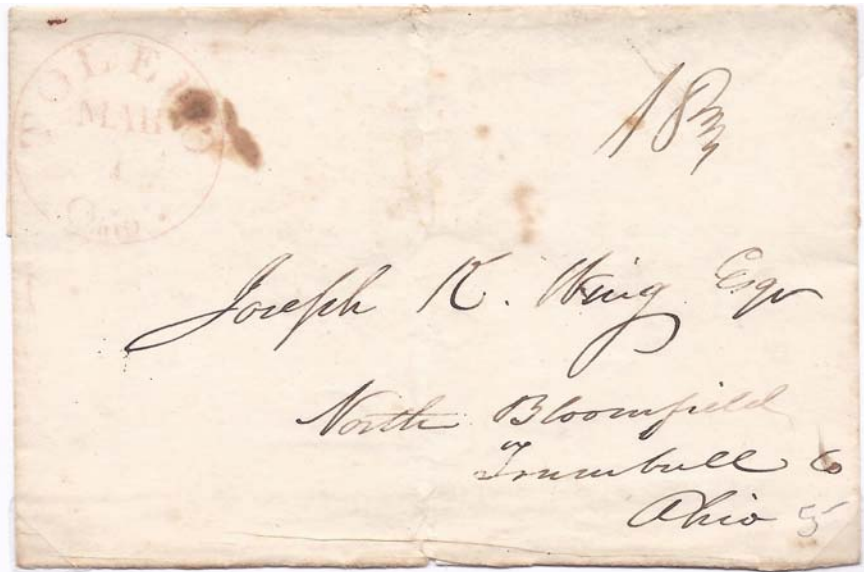 TOLEDO
MAR
1
Ohio
18¾
Joseph K. Wing Esqr
North Bloomfield
Trumbull Co
Ohio 5